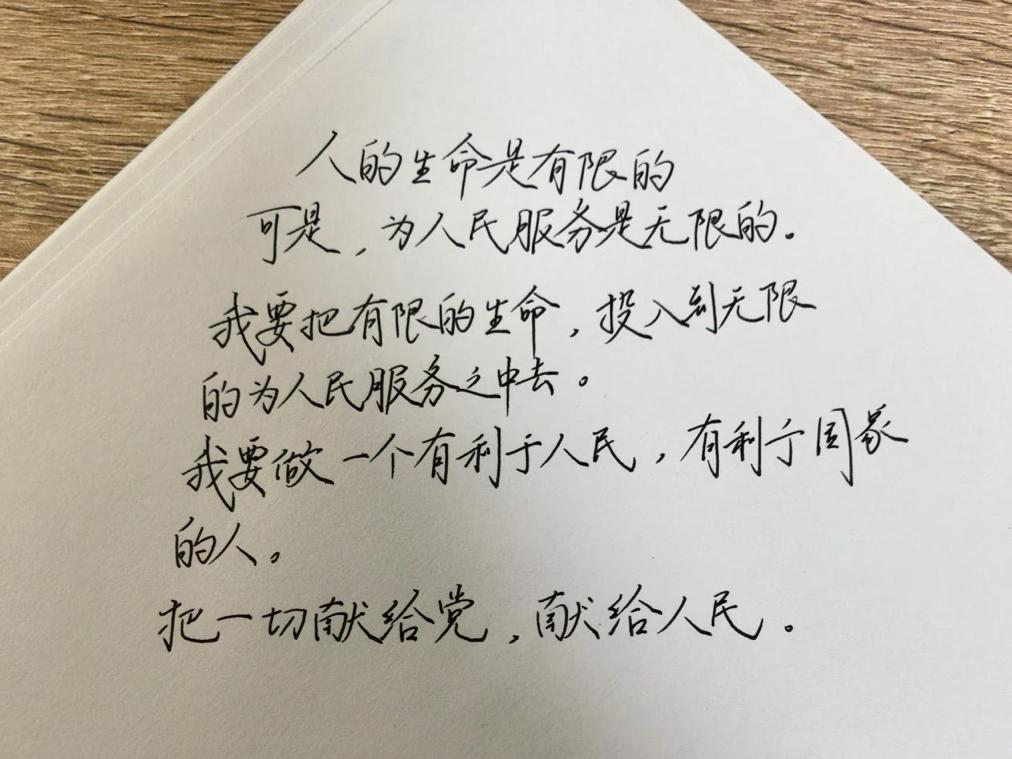 人的生命是有限的
可是,为人民服务是无限的.
我要把有限的生命,投入到无限
的为人民服务之中去。
我要做一个有利于人民,有利于国家
的人。
把一切献给党,献给人民。